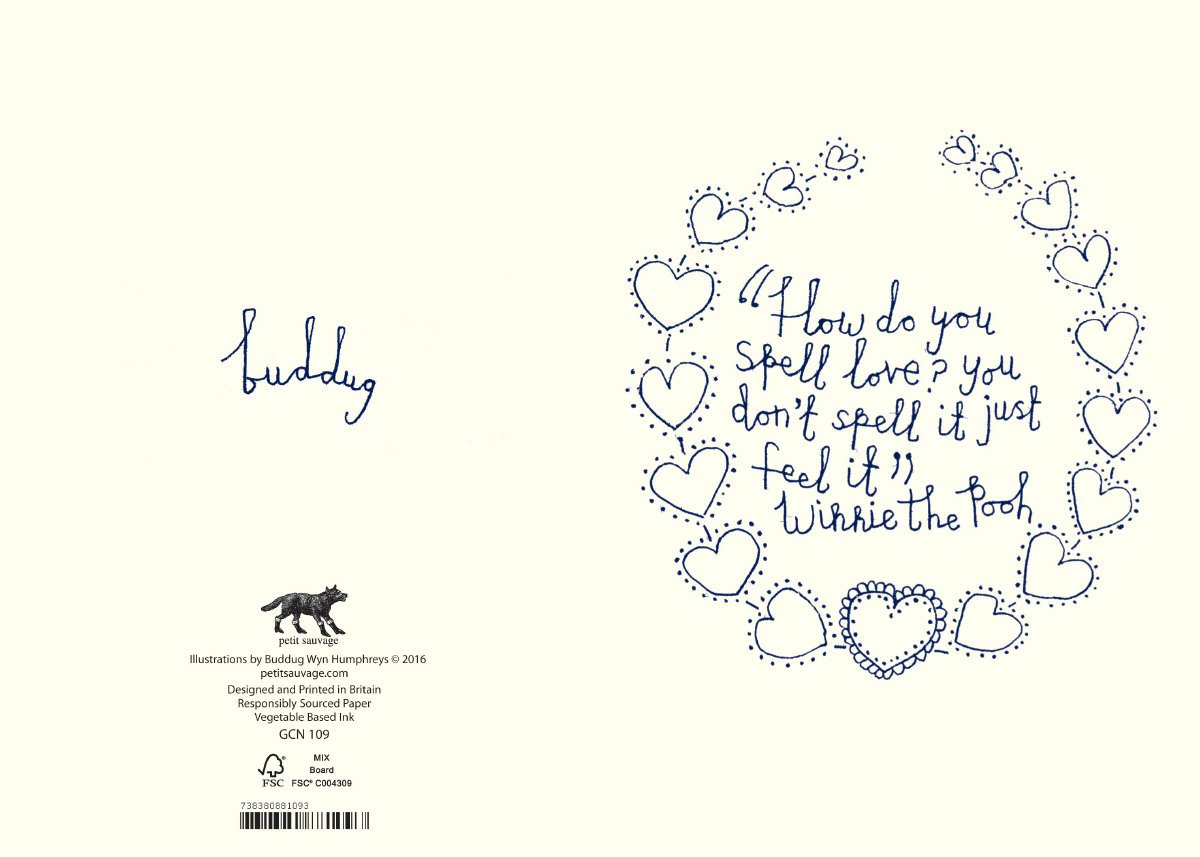 buddug
petit sauvage
Illustrations by Buddug Wyn Humphreys © 2016
petitsauvage.com
Designed and Printed in Britain
Responsibly Sourced Paper
Vegetable Based Ink
GCN 109
FSC®
MIX
Board
FSC® C004309
738380881093
“How do you
spell love? you
don't spell it just
feel it”
Winnie the Pooh